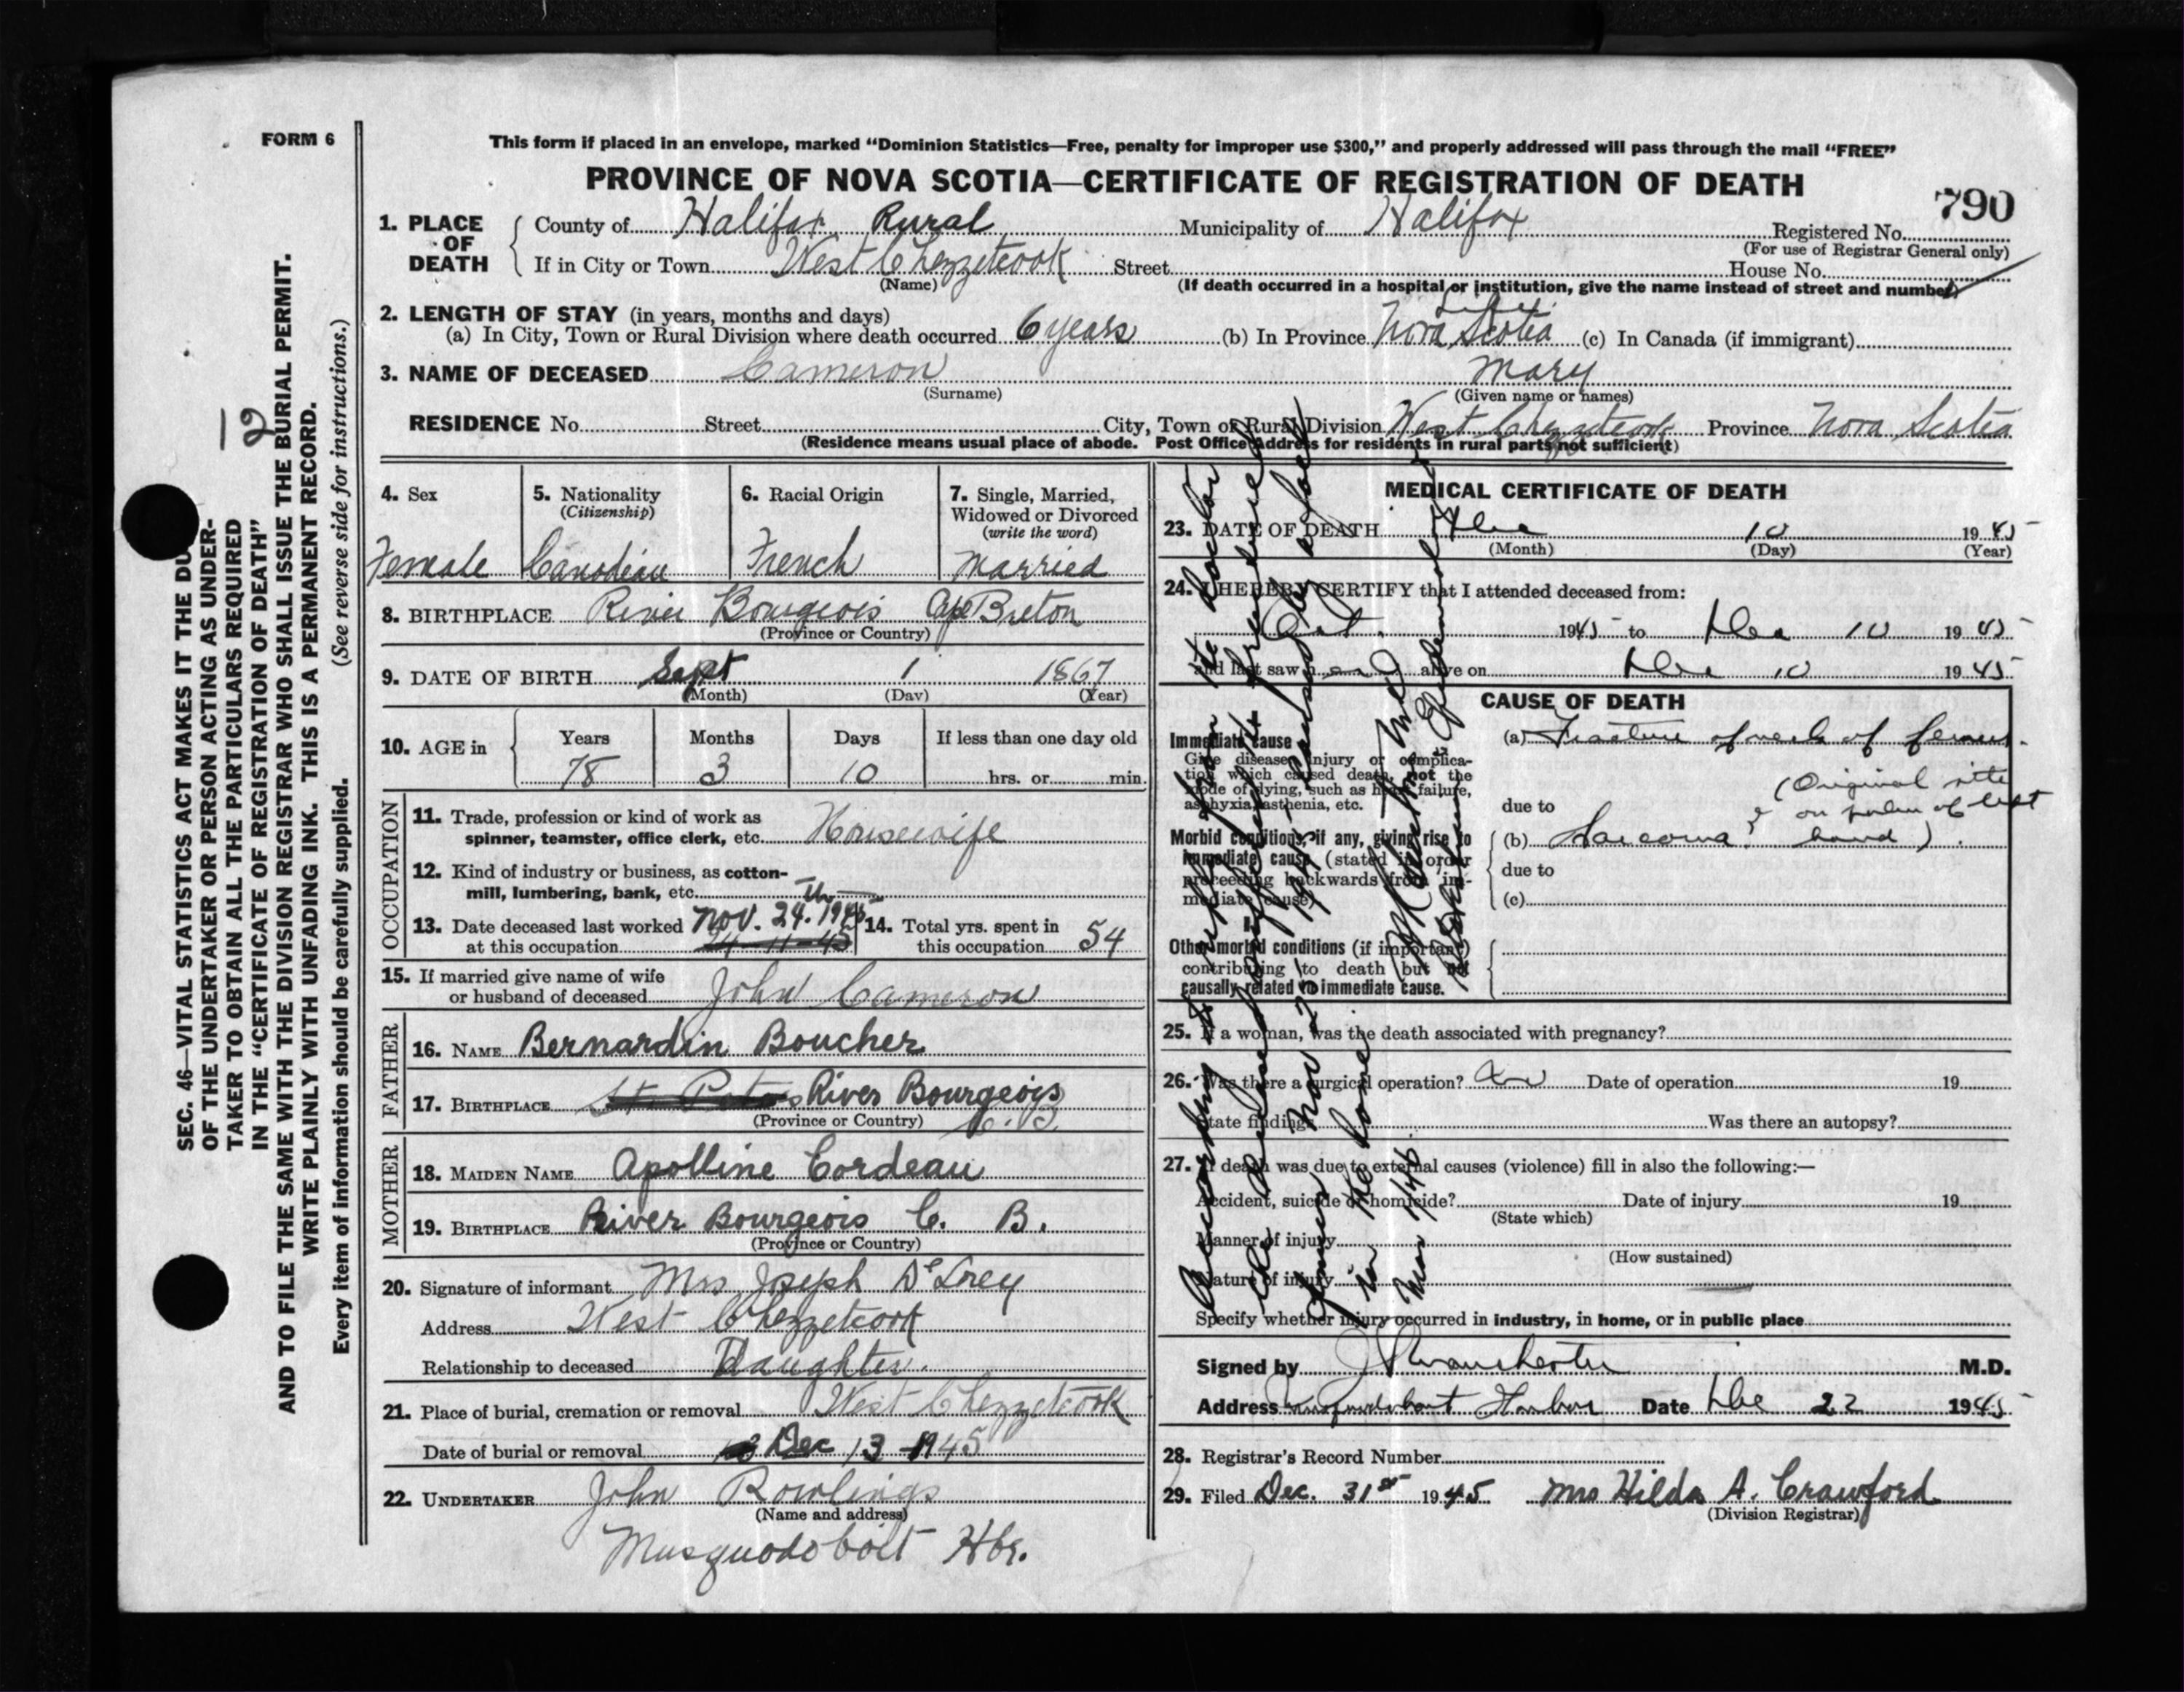 FORM 6
This form if placed in an envelope, marked “Dominion Statistics—Free, penalty for improper use $300,” and properly addressed will pass through the mail “FREE”
PROVINCE OF NOVA SCOTIA—CERTIFICATE OF REGISTRATION OF DEATH
790
1. PLACE OF DEATH
County of Halifax Rural Municipality of Halifax Registered No.
(For use of Registrar General only)
If in City or Town West Chezzetcook Street House No.
(Name) (If death occurred in a hospital or institution, give the name instead of street and number)
2. LENGTH OF STAY (in years, months and days)
Life
(a) In City, Town or Rural Division where death occurred 6 years (b) In Province Nova Scotia (c) In Canada (if immigrant)
3. NAME OF DECEASED Cameron Mary
(Surname) (Given name or names)
RESIDENCE No. Street City, Town or Rural Division West Chezzetcook Province Nova Scotia
(Residence means usual place of abode. Post Office Address for residents in rural parts not sufficient)
4. Sex
Female
5. Nationality
(Citizenship)
Canadian
6. Racial Origin
French
7. Single, Married,
Widowed or Divorced
(write the word)
Married
8. BIRTHPLACE River Bourgeois Cape Breton
(Province or Country)
9. DATE OF BIRTH Sept 1 1867
(Month) (Day) (Year)
10. AGE in
Years Months Days If less than one day old
78 3 10 hrs. or min.
OCCUPATION
11. Trade, profession or kind of work as
spinner, teamster, office clerk, etc. Housewife
12. Kind of industry or business, as cotton-
mill, lumbering, bank, etc.
13. Date deceased last worked Nov. 24th 1945
at this occupation 24-11-45
14. Total yrs. spent in
this occupation 54
15. If married give name of wife
or husband of deceased John Cameron
FATHER
16. NAME Bernardin Boucher
17. BIRTHPLACE St. Peters River Bourgeois
(Province or Country) C. B.
MOTHER
18. MAIDEN NAME Apolline Cordeau
19. BIRTHPLACE River Bourgeois C. B.
(Province or Country)
20. Signature of informant Mrs Joseph DeLorey
Address West Chezzetcook
Relationship to deceased Daughter.
21. Place of burial, cremation or removal West Chezzetcook
Date of burial or removal Dec 13 1945
22. UNDERTAKER John Rowlings
(Name and address)
Musquodoboit Hbr.
MEDICAL CERTIFICATE OF DEATH
23. DATE OF DEATH Dec 10 1945
(Month) (Day) (Year)
24. I HEREBY CERTIFY that I attended deceased from:
Oct. 1945 to Dec 10 1945
and last saw h alive on Dec 10 1945
CAUSE OF DEATH
Immediate cause
Give disease, injury or complica-
tion which caused death, not the
mode of dying, such as heart failure,
asphyxia, asthenia, etc.
(a) Fracture of neck of femur.
due to
Morbid conditions, if any, giving rise to
immediate cause (stated in order
proceeding backwards from im-
mediate cause).
(b) Sarcoma? (Original site
on palm of left
hand).
due to
(c)
II
Other morbid conditions (if important)
contributing to death but not
causally related to immediate cause.
25. If a woman, was the death associated with pregnancy?
26. Was there a surgical operation? Date of operation 19
State findings Was there an autopsy?
27. If death was due to external causes (violence) fill in also the following:—
Accident, suicide or homicide? Date of injury 19
(State which)
Manner of injury
(How sustained)
Nature of injury
Specify whether injury occurred in industry, in home, or in public place
Signed by M.D.
Address Musquodoboit Harbour Date Dec 22 1945
28. Registrar's Record Number
29. Filed Dec. 31st 1945 Mrs Hilda A. Crawford
(Division Registrar)
According to the doctor
the fracture
Nov 24 1945 caused by
in the home
Mar 1946.
12
SEC. 46—VITAL STATISTICS ACT MAKES IT THE DU
OF THE UNDERTAKER OR PERSON ACTING AS UNDER-
TAKER TO OBTAIN ALL THE PARTICULARS REQUIRED
IN THE “CERTIFICATE OF REGISTRATION OF DEATH”
AND TO FILE THE SAME WITH THE DIVISION REGISTRAR WHO SHALL ISSUE THE BURIAL PERMIT.
WRITE PLAINLY WITH UNFADING INK. THIS IS A PERMANENT RECORD.
Every item of information should be carefully supplied. (See reverse side for instructions.)